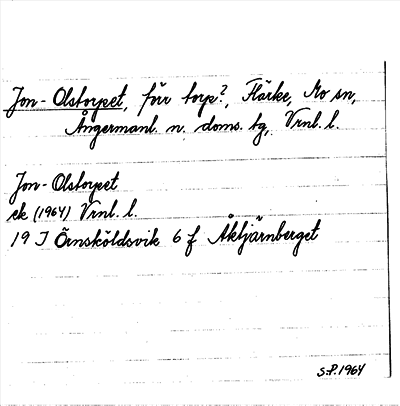 Jon-Olstorpet, förr torp?, Flärke, Mo sn,
Ångermanl. n. doms. tg, Vrnl. l.
Jon-Olstorpet
ek (1964) Vrnl. l.
19 J Örnsköldsvik 6 f Åkljärnberget
S.P. 1964